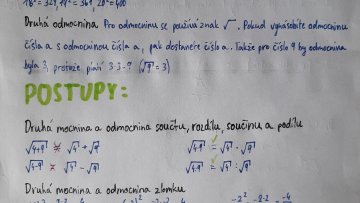 18² = 324, 19² = 361, 20² = 400
Druhá odmocnina. Pro odmocninu se používá znak √ . Pokud vynásobíte odmocninu
čísla a s odmocninou čísla a, pak dostanete číslo a. Takže pro číslo 9 by odmocnina
byla 3, protože platí 3·3=9 (√9 = 3)
POSTUPY:
Druhá mocnina a odmocnina součtu, rozdílu, součinu a podílu
√4+9 ≠ √4 + √9 √4·9 = √4 · √9
√4-9 ≠ √4 - √9 √4:9 = √4 : √9
Druhá mocnina a odmocnina zlomku